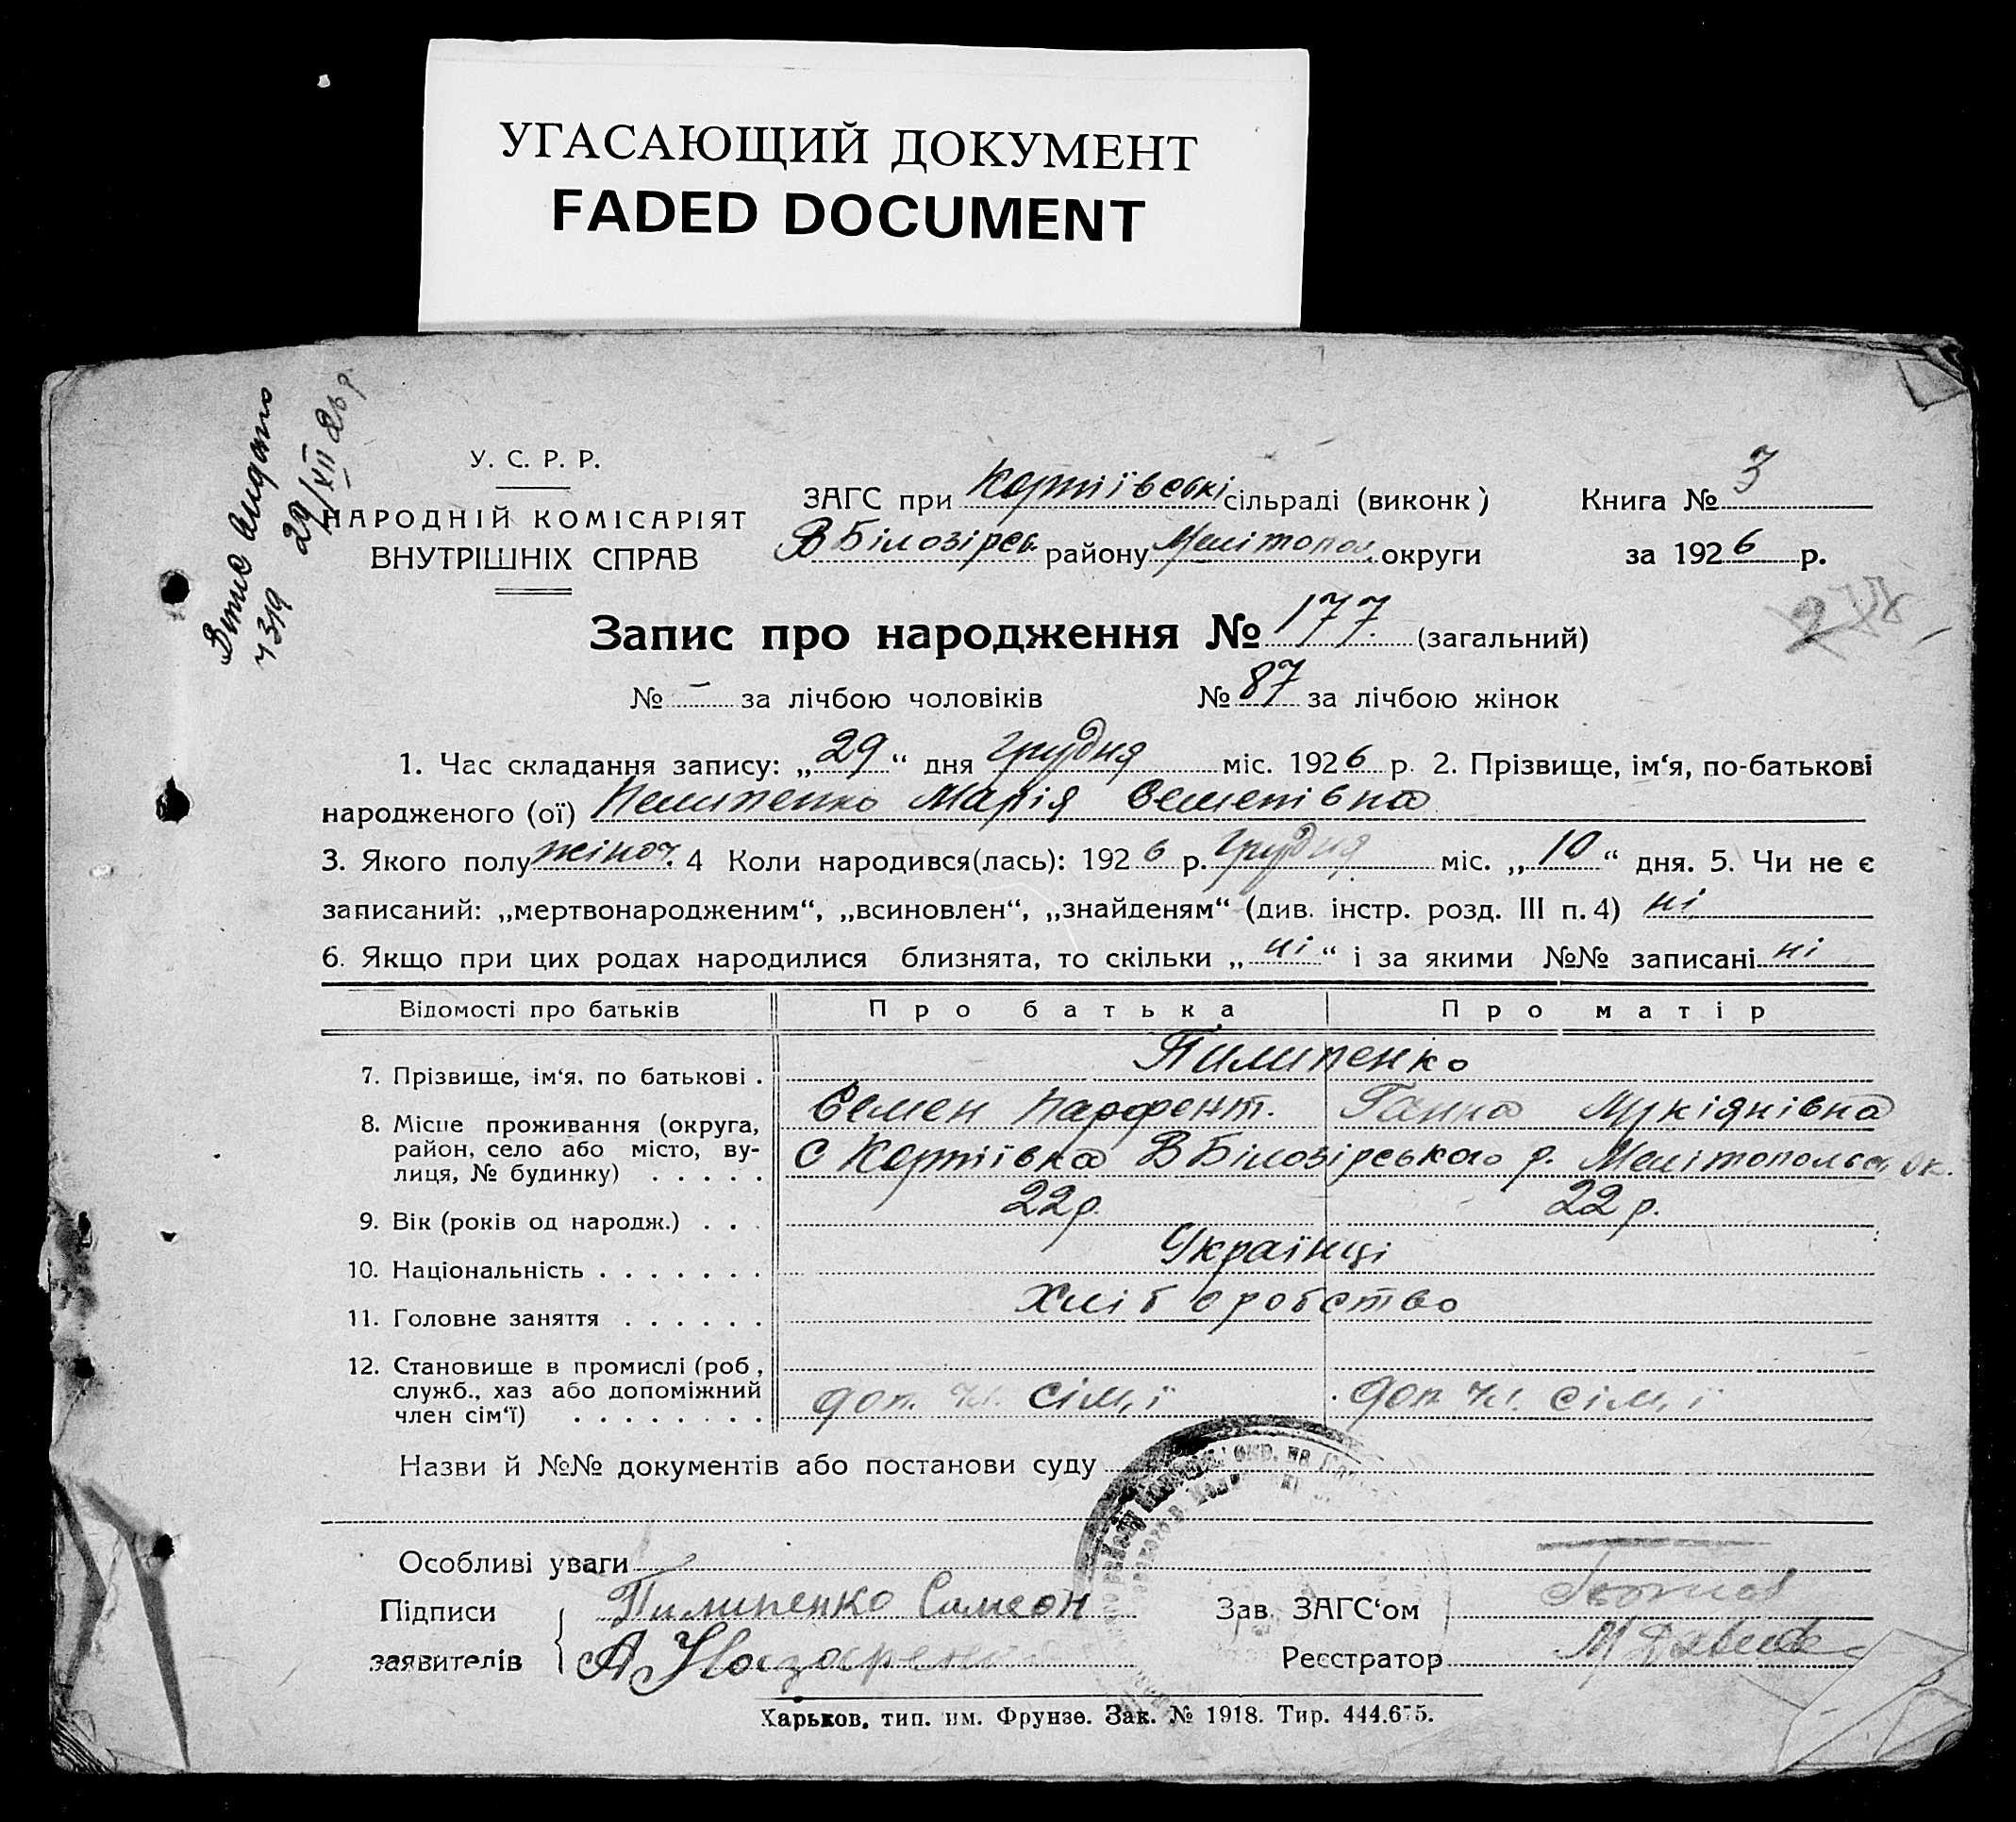 УГАСАЮЩИЙ ДОКУМЕНТ
FADED DOCUMENT
Витяг видано
ч 319 29/XII 26 р
У. С. Р. Р.
НАРОДНІЙ КОМІСАРІЯТ
ВНУТРІШНІХ СПРАВ
ЗАГС при сільраді (виконк)
В Білозірськ. району Мелітопол. округи
Книга № 3
за 1926 р.
Запис про народження № 177. (загальний)
№ – за лічбою чоловіків № 87 за лічбою жінок
1. Час складання запису: „29“ дня грудня міс. 1926 р. 2. Прізвище, ім‘я, по-батькові
народженого (ої) Пилипенко Марія Семенівна
3. Якого полу жіноч. 4 Коли народився(лась): 1926 р. грудня міс. „10“ дня. 5. Чи не є
записаний: „мертвонародженим“, „всиновлен“, „знайденям“ (див. інстр. розд. III п. 4) ні
6. Якщо при цих родах народилися близнята, то скільки „ні“ і за якими №№ записані ні
Відомості про батьків Про батька Про матір
7. Прізвище, ім‘я, по батькові . Пилипенко
8. Місце проживання (округа, район, село або місто, вулиця, № будинку) . . . . .
Семен Парфент. Ганна
С В Білозірського р. Мелітопольск ок.
9. Вік (років од народж.) . . . 22 р. 22 р.
10. Національність . . . . . . . Українці
11. Головне заняття . . . . . . Хліборобство
12. Становище в промислі (роб, служб., хаз або допоміжний член сім‘ї) . . . . . . . .
доп. чл. сім,ї доп. чл. сім,ї
Назви й №№ документів або постанови суду
Особливі уваги
Підписи
заявителів
Пилипенко Симеон
А Назарен
Зав. ЗАГС‘ом
Реєстратор
Харьков, тип. им. Фрунзе. Зак. № 1918. Тир. 444.675.